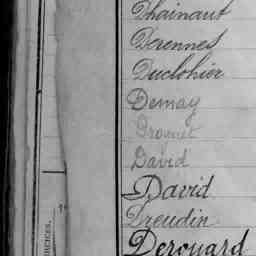 Dhainaut
Derennes
Duclohier
Demay
Drouet
David
David
Dreudin
Derouard
RCICES.